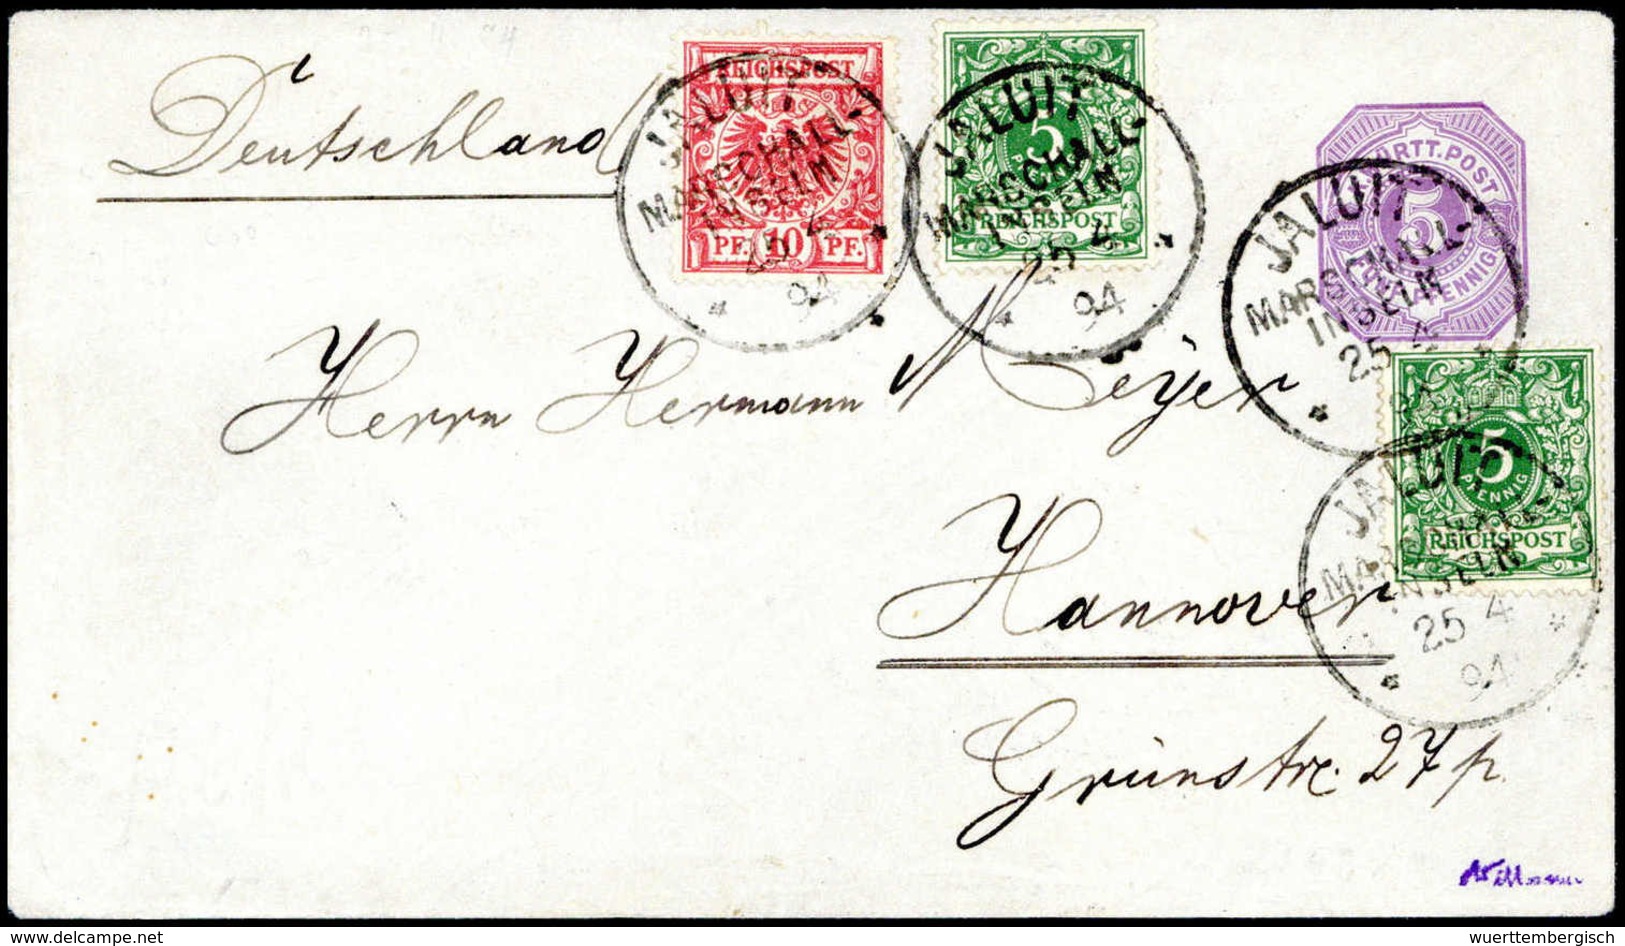 Deutschland
REICHSPOST
PF. 10 PF.
JALUIT
MARSCHALL-
INSELN
25 4
94
5
REICHSPOST
JALUIT
MARSCHALL-
INSELN
25 4
94
WÜRTT. POST
5
FÜNF PFENNIG
JALUIT
MARSCHALL-
INSELN
25 4
94
5
PFENNIG
REICHSPOST
JALUIT
MARSCHALL-
INSELN
25 4
94
Herrn Hermann Meyer
Hannover
Grünstr. 27 p.
© www.delcampe.net
wuerttembergisch